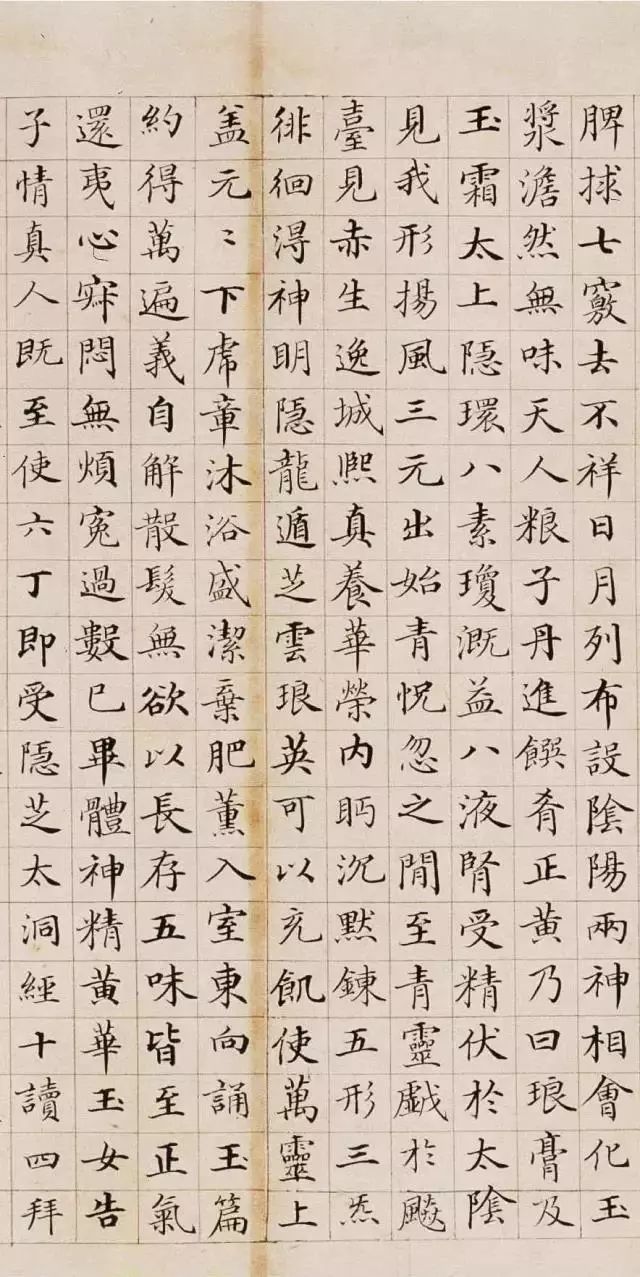 脾捄七竅去不祥日月列布設陰陽兩神相會化玉
漿澹然無味天人粮子丹進饌肴正黃乃曰琅膏及
玉霜太上隱環八素瓊溉益八液腎受精伏於太陰
見我形揚風三元出始青怳忽之閒至青靈戲於飈
臺見赤生逸城熈真養華榮內眄沉默鍊五形三炁
徘徊得神明隱龍遁芝雲琅英可以充飢使萬靈上
盖元〻下虎章沐浴盛潔棄肥薰入室東向誦玉篇
約得萬遍義自解散髮無欲以長存五味皆至正氣
還夷心寂悶無煩冤過數已畢體神精黃華玉女告
子情真人既至使六丁即受隱芝太洞經十讀四拜